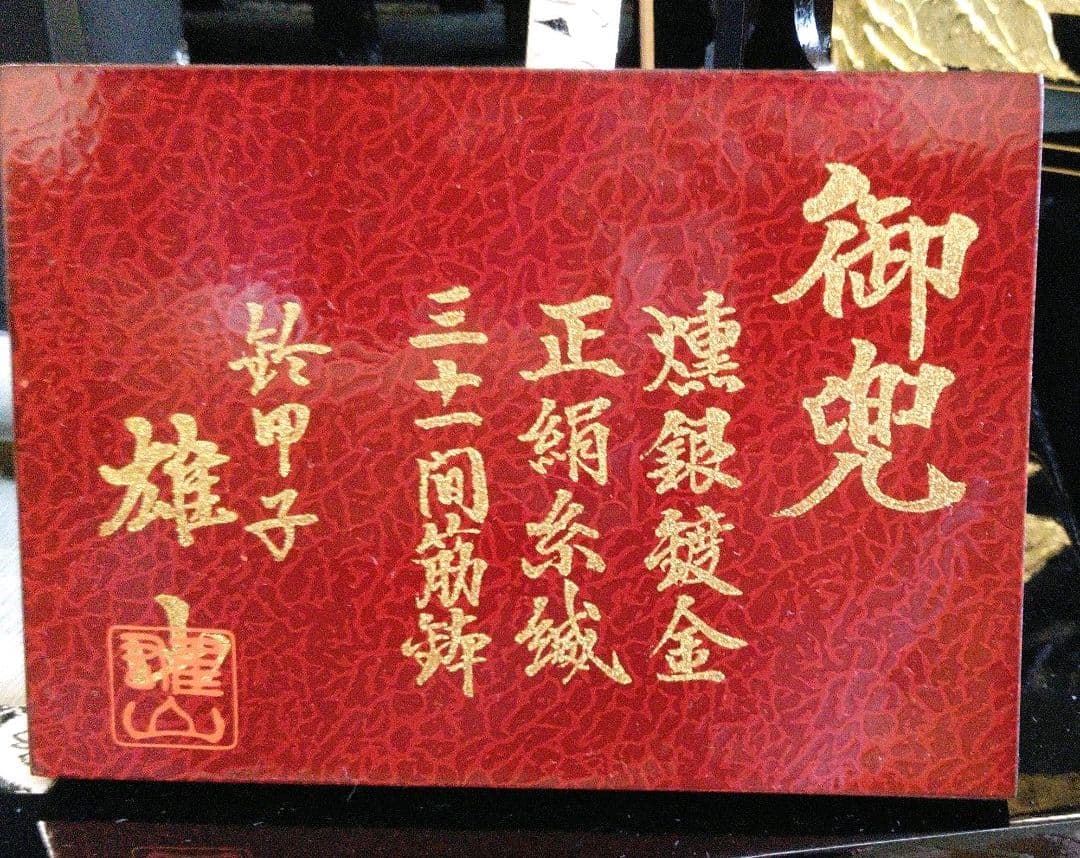 御兜
燻銀鍍金
正絹糸縅
三十一間筋鉢
鈴甲子
雄山
雄山